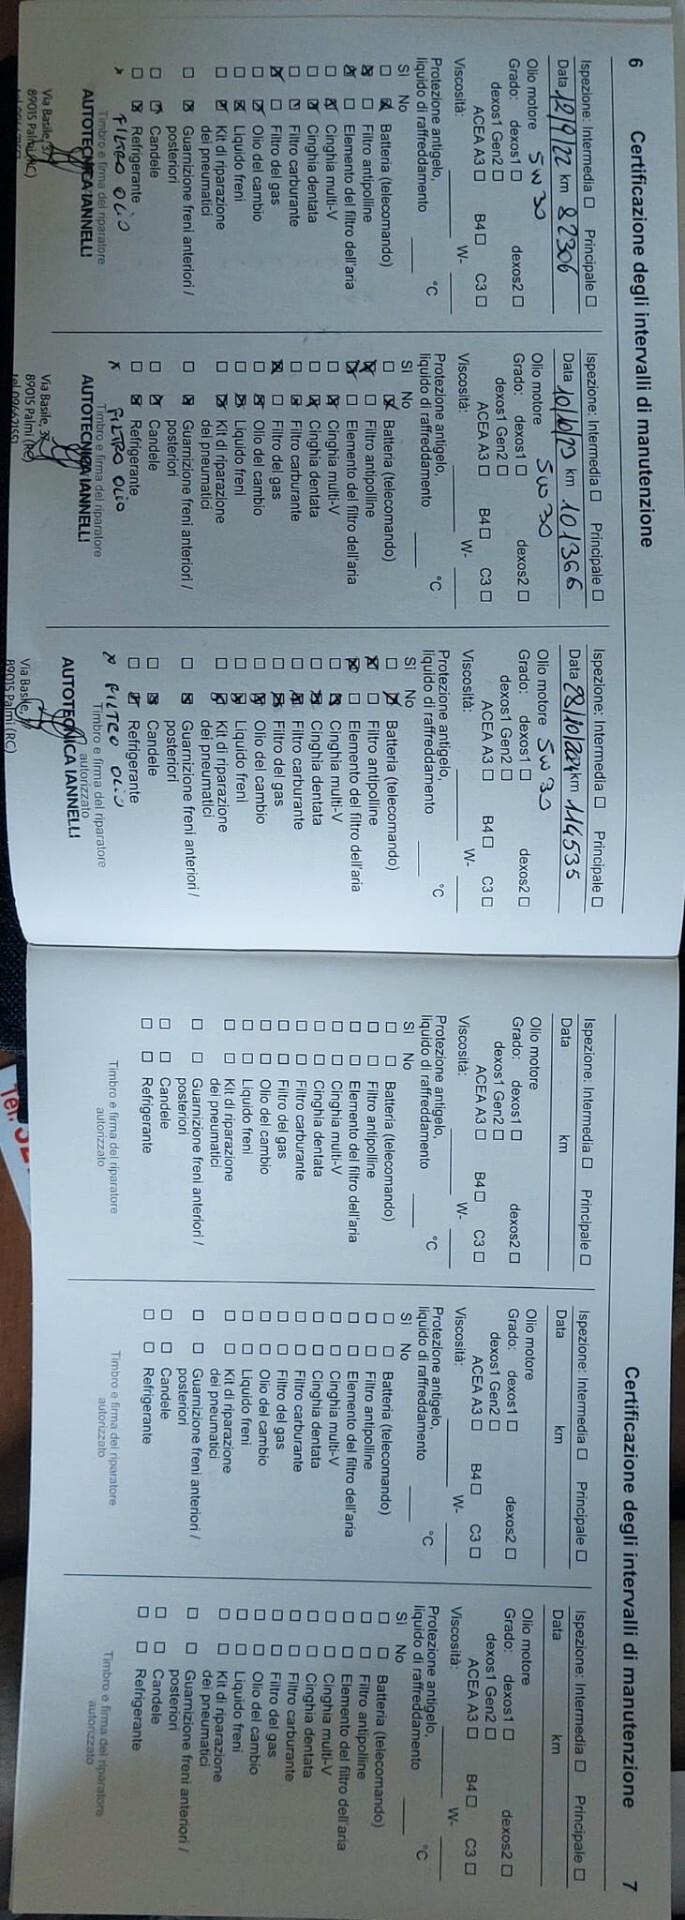 6
Certificazione degli intervalli di manutenzione
Ispezione: Intermedia ☐ Principale ☐
Data 12/9/22 km 82306
Olio motore 5W30
Grado: dexos1 ☐ dexos2 ☐
dexos1 Gen2 ☐
ACEA A3 ☐ B4 ☐ C3 ☐
Viscosità: W-
Protezione antigelo,
liquido di raffreddamento °C
Sì No
Batteria (telecomando)
Filtro antipolline
Elemento del filtro dell'aria
Cinghia multi-V
Cinghia dentata
Filtro carburante
Filtro del gas
Olio del cambio
Liquido freni
Kit di riparazione
dei pneumatici
Guarnizione freni anteriori /
posteriori
Candele
Refrigerante
x FILTRO OLIO
Timbro e firma del riparatore
AUTOTECNICA IANNELLI
Via Basile, 37
89015 Palmi (RC)
Ispezione: Intermedia ☐ Principale ☐
Data 10/10/23 km 101366
Olio motore 5W30
Grado: dexos1 ☐ dexos2 ☐
dexos1 Gen2 ☐
ACEA A3 ☐ B4 ☐ C3 ☐
Viscosità: W-
Protezione antigelo,
liquido di raffreddamento °C
Sì No
Batteria (telecomando)
Filtro antipolline
Elemento del filtro dell'aria
Cinghia multi-V
Cinghia dentata
Filtro carburante
Filtro del gas
Olio del cambio
Liquido freni
Kit di riparazione
dei pneumatici
Guarnizione freni anteriori /
posteriori
Candele
Refrigerante
x FILTRO OLIO
Timbro e firma del riparatore
AUTOTECNICA IANNELLI
Via Basile, 37
89015 Palmi (RC)
Ispezione: Intermedia ☐ Principale ☐
Data 28/10/2024 km 114535
Olio motore 5W30
Grado: dexos1 ☐ dexos2 ☐
dexos1 Gen2 ☐
ACEA A3 ☐ B4 ☐ C3 ☐
Viscosità: W-
Protezione antigelo,
liquido di raffreddamento °C
Sì No
Batteria (telecomando)
Filtro antipolline
Elemento del filtro dell'aria
Cinghia multi-V
Cinghia dentata
Filtro carburante
Filtro del gas
Olio del cambio
Liquido freni
Kit di riparazione
dei pneumatici
Guarnizione freni anteriori /
posteriori
Candele
Refrigerante
x FILTRO OLIO
Timbro e firma del riparatore
autorizzato
AUTOTECNICA IANNELLI
Via Basile,
89015 Palmi (RC)
Certificazione degli intervalli di manutenzione
7
Ispezione: Intermedia ☐ Principale ☐
Data km
Olio motore
Grado: dexos1 ☐ dexos2 ☐
dexos1 Gen2 ☐
ACEA A3 ☐ B4 ☐ C3 ☐
Viscosità: W-
Protezione antigelo,
liquido di raffreddamento °C
Sì No
☐ ☐ Batteria (telecomando)
☐ ☐ Filtro antipolline
☐ ☐ Elemento del filtro dell'aria
☐ ☐ Cinghia multi-V
☐ ☐ Cinghia dentata
☐ ☐ Filtro carburante
☐ ☐ Filtro del gas
☐ ☐ Olio del cambio
☐ ☐ Liquido freni
☐ ☐ Kit di riparazione
dei pneumatici
☐ ☐ Guarnizione freni anteriori /
posteriori
☐ ☐ Candele
☐ ☐ Refrigerante
Timbro e firma del riparatore
autorizzato
Ispezione: Intermedia ☐ Principale ☐
Data km
Olio motore
Grado: dexos1 ☐ dexos2 ☐
dexos1 Gen2 ☐
ACEA A3 ☐ B4 ☐ C3 ☐
Viscosità: W-
Protezione antigelo,
liquido di raffreddamento °C
Sì No
☐ ☐ Batteria (telecomando)
☐ ☐ Filtro antipolline
☐ ☐ Elemento del filtro dell'aria
☐ ☐ Cinghia multi-V
☐ ☐ Cinghia dentata
☐ ☐ Filtro carburante
☐ ☐ Filtro del gas
☐ ☐ Olio del cambio
☐ ☐ Liquido freni
☐ ☐ Kit di riparazione
dei pneumatici
☐ ☐ Guarnizione freni anteriori /
posteriori
☐ ☐ Candele
☐ ☐ Refrigerante
Timbro e firma del riparatore
autorizzato
Ispezione: Intermedia ☐ Principale ☐
Data km
Olio motore
Grado: dexos1 ☐ dexos2 ☐
dexos1 Gen2 ☐
ACEA A3 ☐ B4 ☐ C3 ☐
Viscosità: W-
Protezione antigelo,
liquido di raffreddamento °C
Sì No
☐ ☐ Batteria (telecomando)
☐ ☐ Filtro antipolline
☐ ☐ Elemento del filtro dell'aria
☐ ☐ Cinghia multi-V
☐ ☐ Cinghia dentata
☐ ☐ Filtro carburante
☐ ☐ Filtro del gas
☐ ☐ Olio del cambio
☐ ☐ Liquido freni
☐ ☐ Kit di riparazione
dei pneumatici
☐ ☐ Guarnizione freni anteriori /
posteriori
☐ ☐ Candele
☐ ☐ Refrigerante
Timbro e firma del riparatore
autorizzato
Tel.